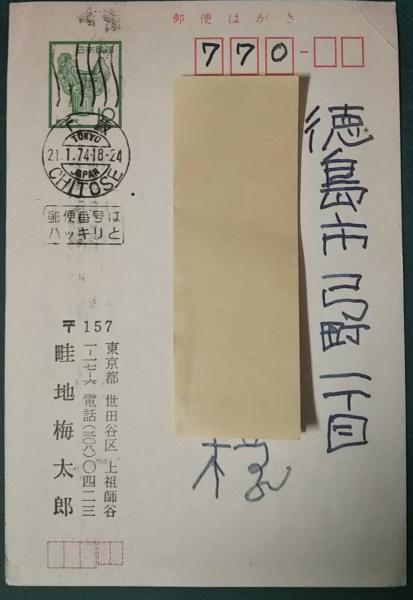 郵便はがき
770
徳島市弓町一丁目
様
日本郵便
10
千歳
TOKYO
21.1.74.18-24
JAPAN
CHITOSE
郵便番号は
ハッキリと
〒157
東京都 世田谷区 上祖師谷
一-一七-六 電話(三〇八)〇四二三
畦地梅太郎